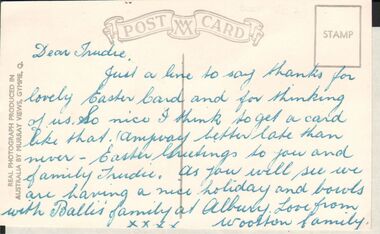 POST CARD
STAMP
Dear Trudie.
Just a line to say thanks for
lovely Easter Card and for thinking
of us. So nice I think to get a card
like that. Anyway better late than
never - Easter Greetings to you and
family Trudie. As you will see we
are having a nice holiday and bowls
with Ballis family at Albury. Love from
xxxx Wootton family.
REAL PHOTOGRAPH PRODUCED IN
AUSTRALIA BY MURRAY VIEWS, GYMPIE, Q.